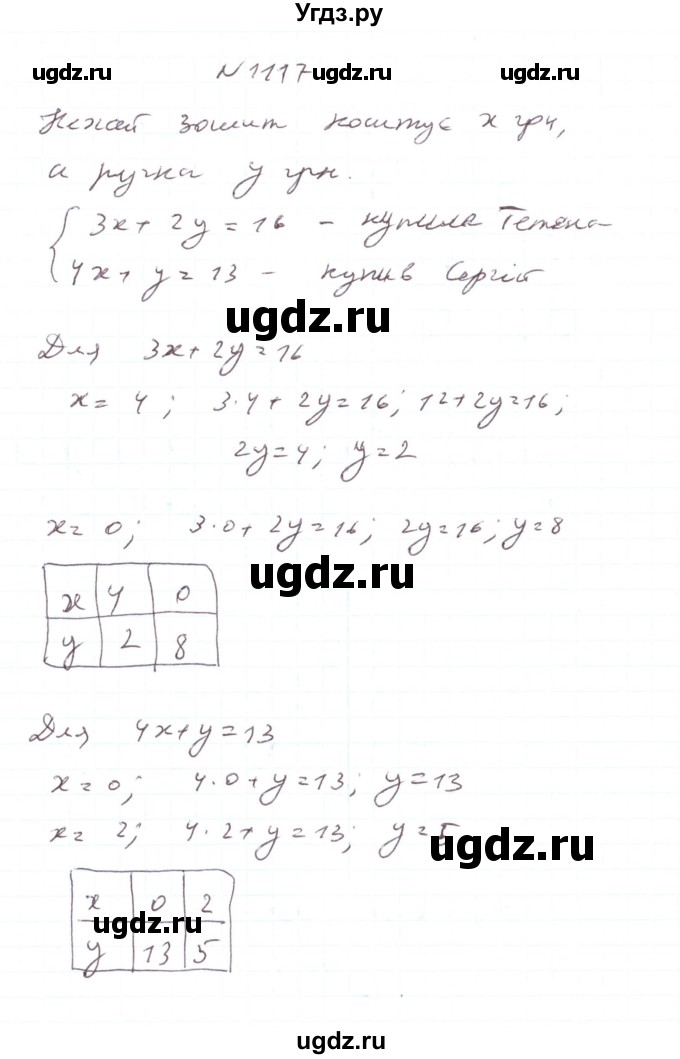 Угдз.ру
ugdz.ru N 1117 ugdz.ru ugdz.ru
Нехай зошит коштує x грн,
а ручка y грн.
{ 3x + 2y = 16 - купила Тетяна
4x + y = 13 - купив Сергій
ugdz.ru
Для 3x + 2y = 16
x = 4; 3·4 + 2y = 16; 12 + 2y = 16;
2y = 4; y = 2
x = 0; 3·0 + 2y = 16; 2y = 16; y = 8
ugdz.ru
x 4 0
y 2 8
Для 4x + y = 13
x = 0; 4·0 + y = 13; y = 13
x = 2; 4·2 + y = 13; y = 5
ugdz.ru
x 0 2
ugdz.ru
y 13 5
ugdz.ru